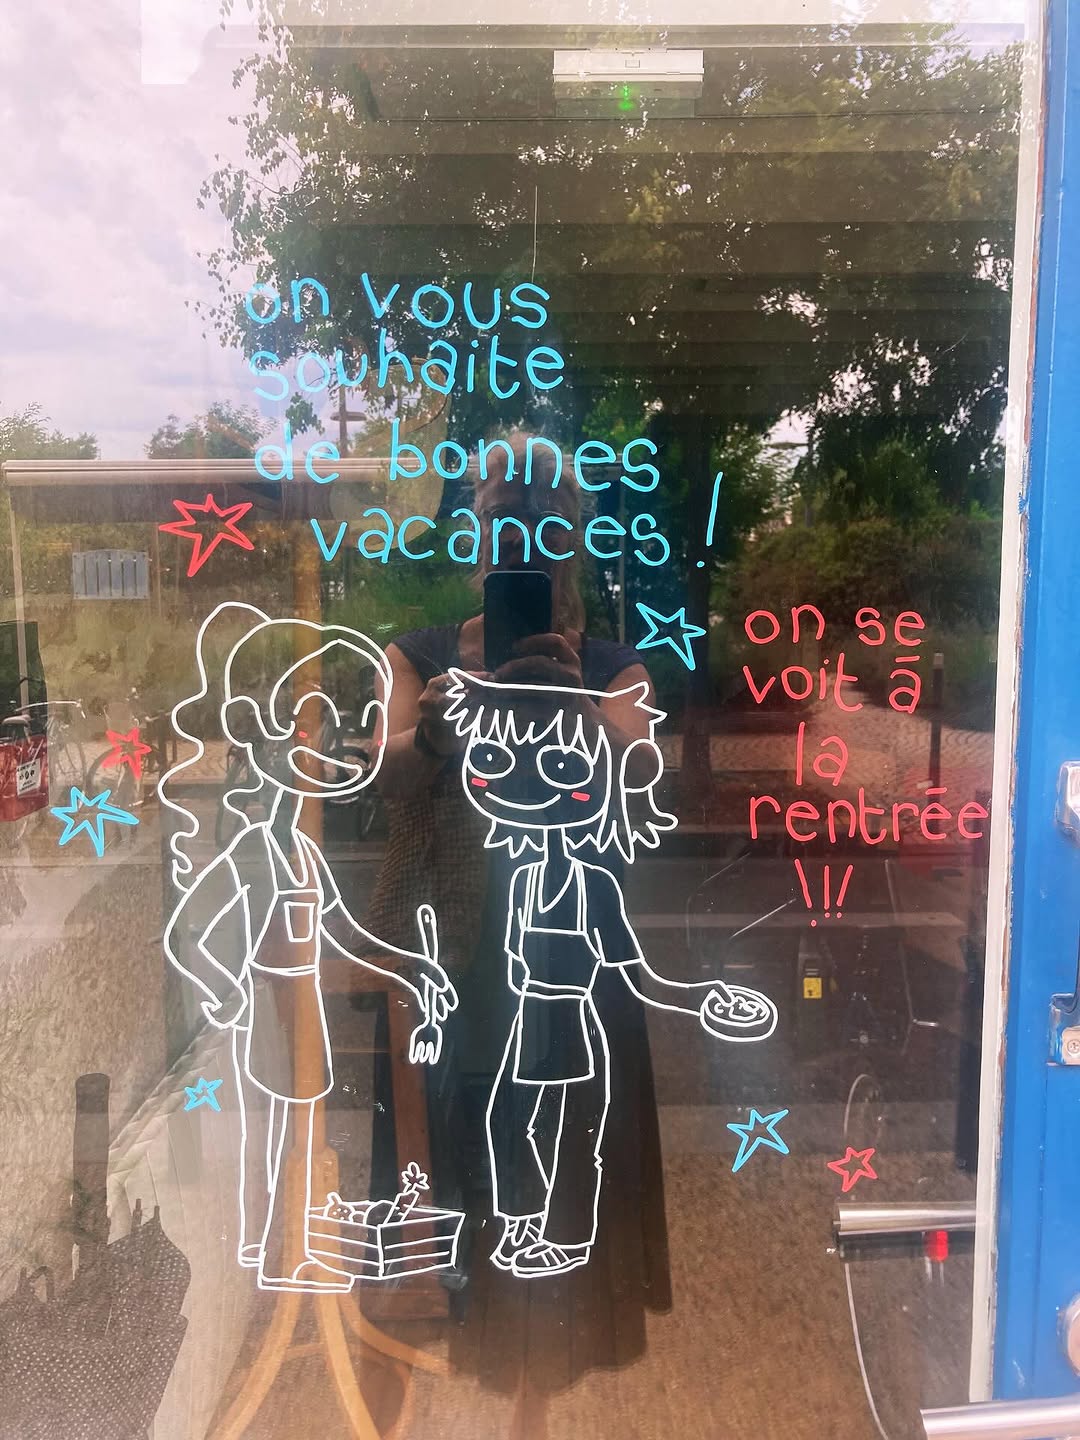 on vous
souhaite
de bonnes
vacances !
on se
voit ā
la
rentrēe
!!!